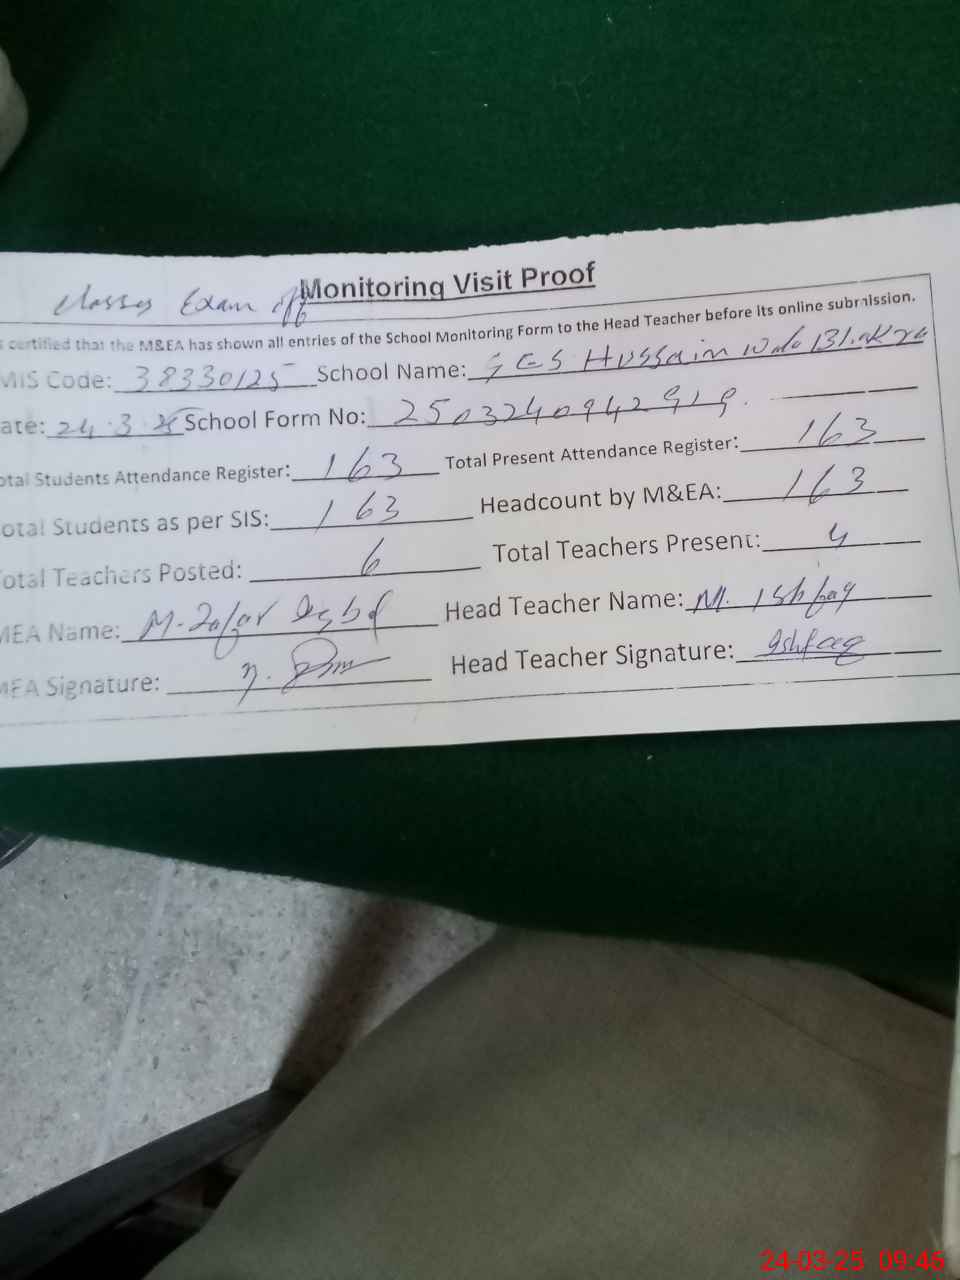 Monitoring Visit Proof
Classes Exam off
certified that the M&EA has shown all entries of the School Monitoring Form to the Head Teacher before its online submission.
MIS Code: 38330125 School Name: GES Hussain
ate: 24.3.25 School Form No: 2503240942919.
otal Students Attendance Register: 163 Total Present Attendance Register: 163
otal Students as per SIS: 163 Headcount by M&EA: 163
otal Teachers Posted: 6 Total Teachers Present: 4
MEA Name: M. Zafar Head Teacher Name: M. Ishfaq
MEA Signature: Head Teacher Signature: Ishfaq
24-03-25 09:46